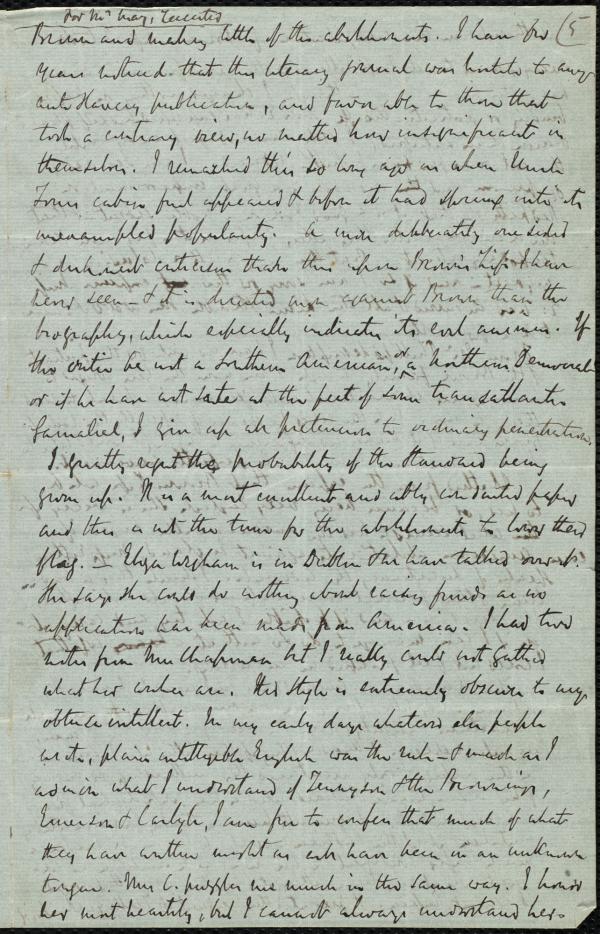 For Mr May, Leicester
5
Brown and making little of the abolitionists. I have for
years noticed that this literary journal was hostile to any
anti slavery publication, and favorable to those that
took a contrary view, no matter how insignificant in
themselves. I remarked this so long ago as when Uncle
Toms cabin first appeared & before it had sprung into its
unexampled popularity. A more deliberately one sided
& dishonest criticism than this upon Brown's Life I have
never seen - & it is directed more against Brown than the
biography, which especially indicates its evil animus. If
the critic be not a Southern American, or a Northern Democrat
or if he have not sate at the feet of some transatlantic
Gamaliel, I give up all pretensions to ordinary penetration.
I greatly regret the probability of the Standard being
given up. It is a most excellent and ably conducted paper
and this is not the time for the abolitionists to lower their
flag. — Eliza Wigham is in Dublin & we have talked over it.
She says she could do nothing about raising funds as no
application has been made from America. I had two
notes from Mrs Chapman but I really could not gather
what her wishes are. Her style is extremely obscure to my
obtuse intellect. In my early days whatever else people
wrote, plain intelligible English was the rule - & much as I
admire what I understand of Tennyson & the Brownings,
Emerson & Carlyle, I am free to confess that much of what
they have written might as well have been in an unknown
tongue. Mrs C. puzzles me much in the same way. I honor
her most heartily, but I cannot always understand her.